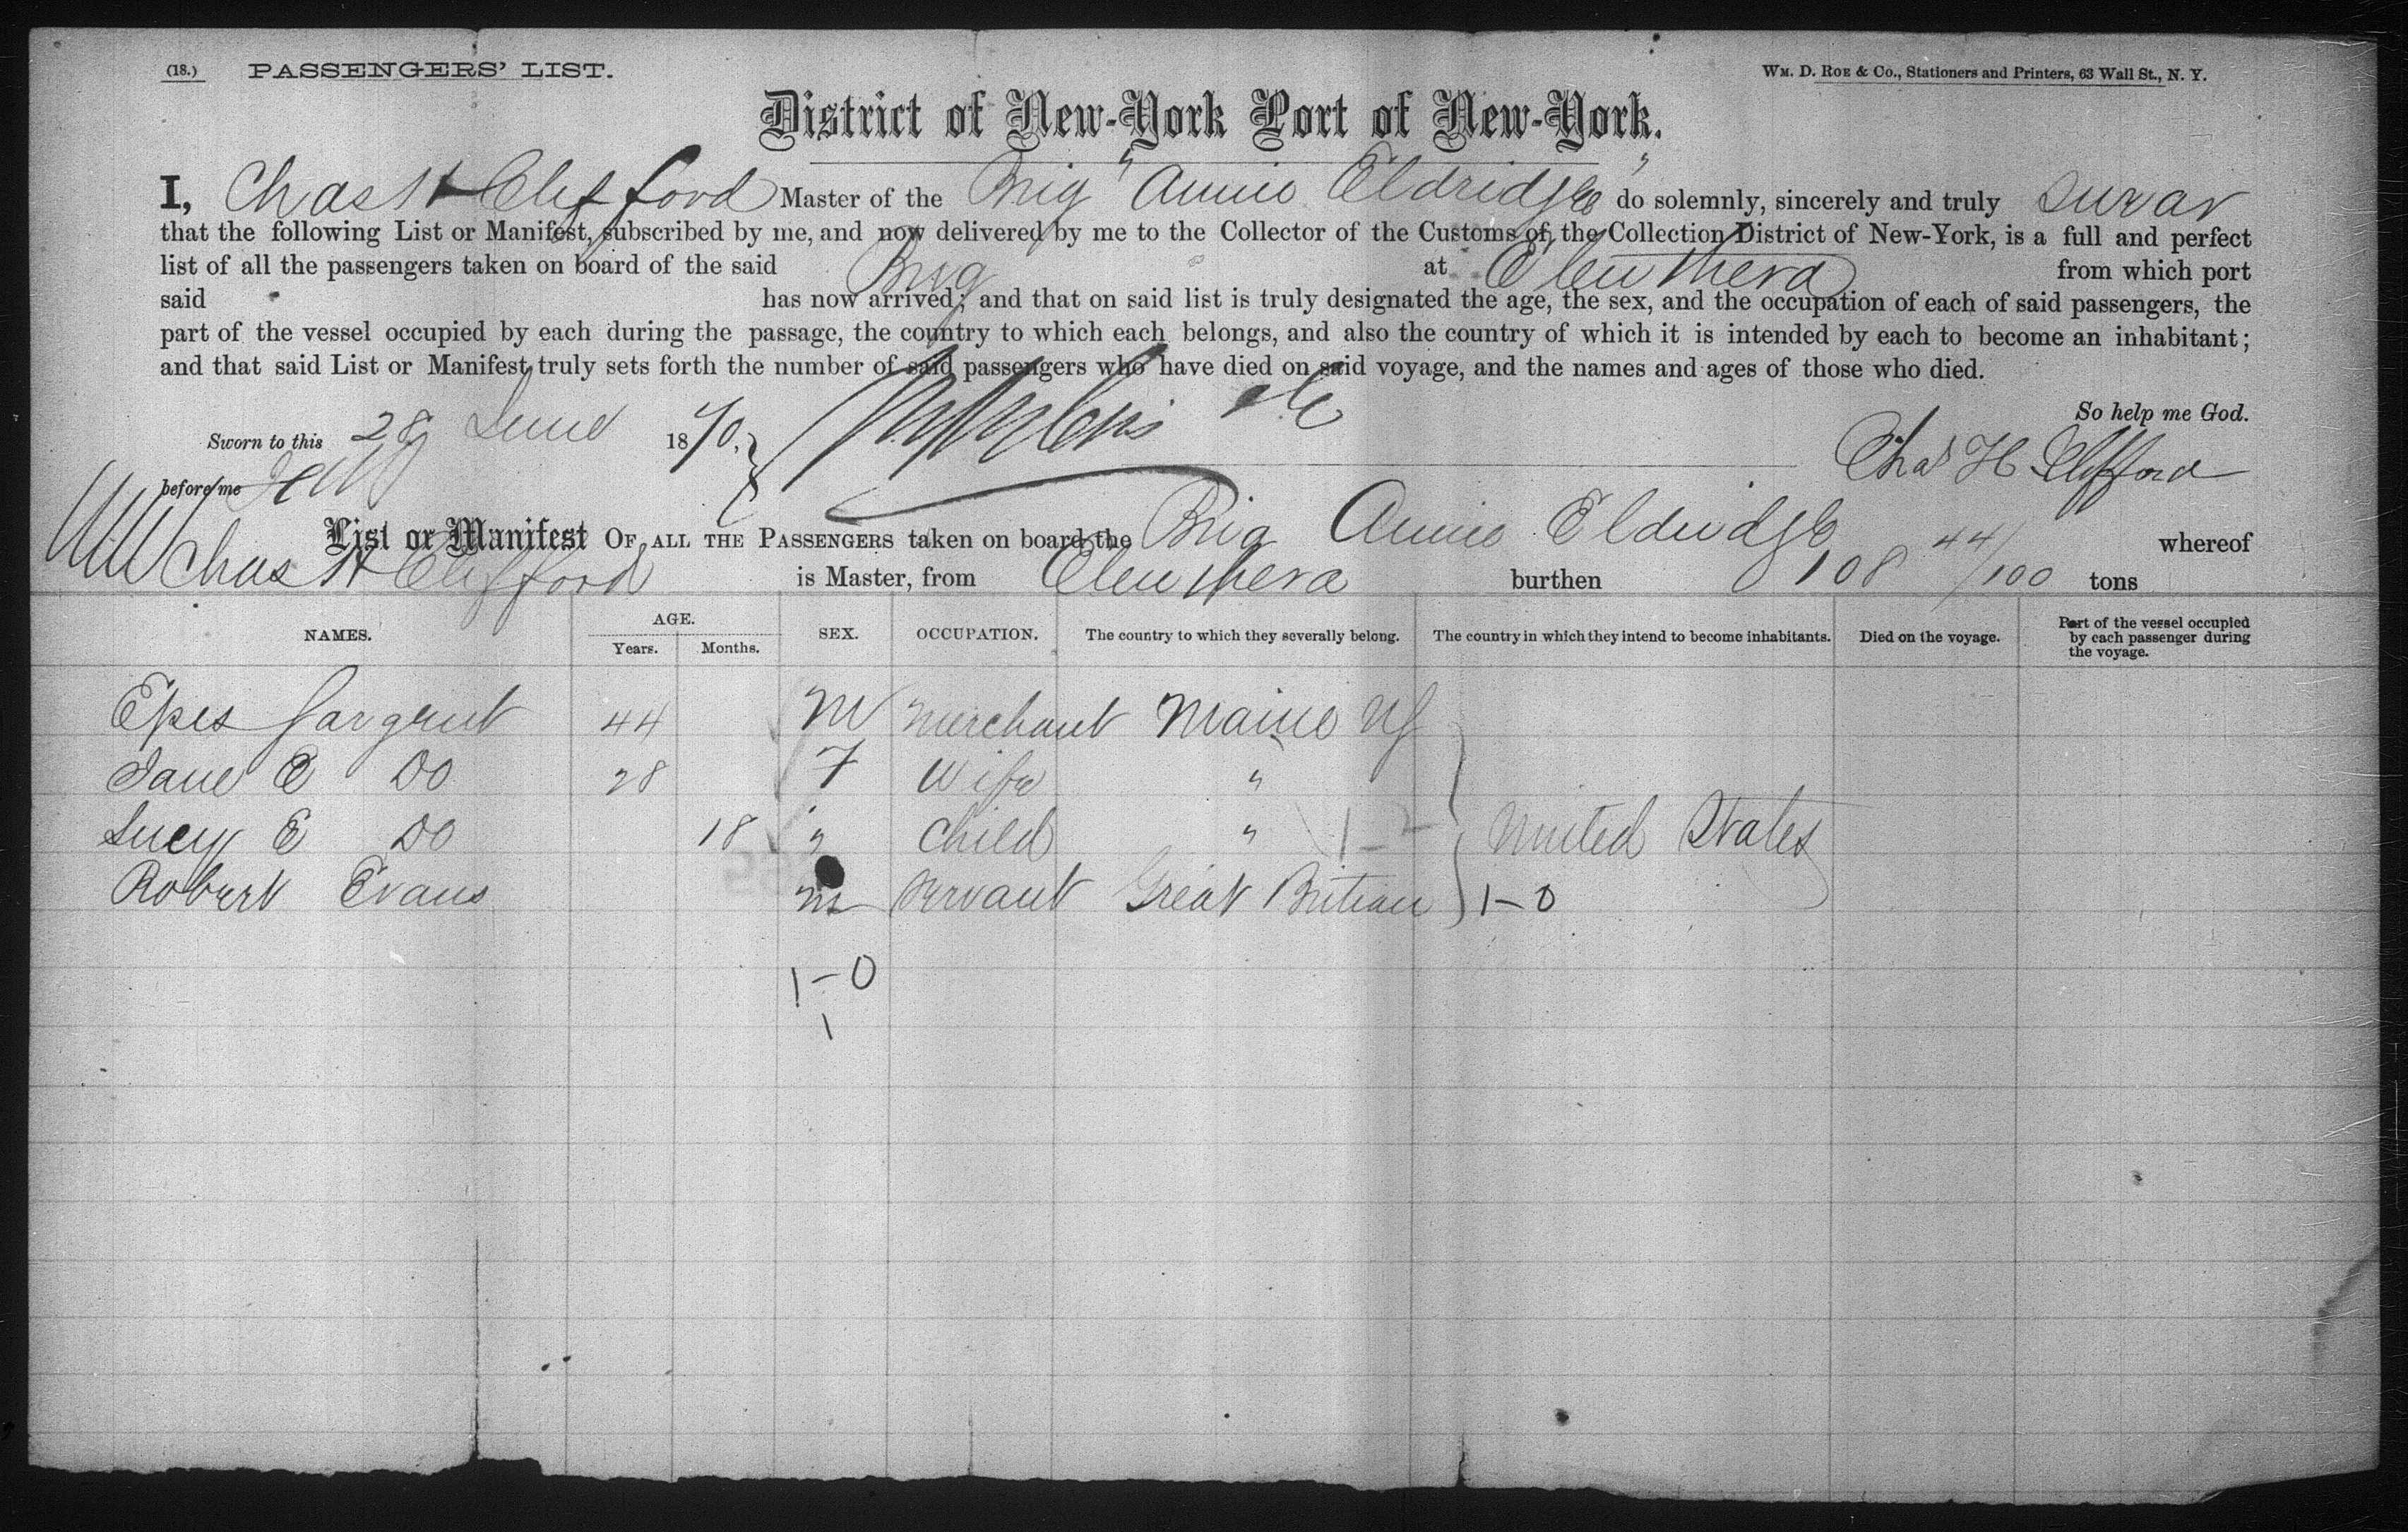 (18.) PASSENGERS' LIST.
WM. D. ROE & Co., Stationers and Printers, 63 Wall St., N. Y.
District of New-York Port of New-York.
I, Chas H Clifford Master of the Brig "Annie Eldridge" do solemnly, sincerely and truly swear
that the following List or Manifest, subscribed by me, and now delivered by me to the Collector of the Customs of the Collection District of New-York, is a full and perfect
list of all the passengers taken on board of the said Brig at Eleuthera from which port
said has now arrived; and that on said list is truly designated the age, the sex, and the occupation of each of said passengers, the
part of the vessel occupied by each during the passage, the country to which each belongs, and also the country of which it is intended by each to become an inhabitant;
and that said List or Manifest truly sets forth the number of said passengers who have died on said voyage, and the names and ages of those who died.
So help me God.
Sworn to this 28 June 1870.
Chas H Clifford
before me
List or Manifest OF ALL THE PASSENGERS taken on board the Brig Annie Eldridge whereof
Chas H Clifford is Master, from Eleuthera burthen 108 44/100 tons
NAMES. AGE. Years. Months. SEX. OCCUPATION. The country to which they severally belong. The country in which they intend to become inhabitants. Died on the voyage. Part of the vessel occupied by each passenger during the voyage.
Epes Sargent 44 M Merchant Maine US
Jane E Do 28 F Wife "
Lucy E Do 18 " Child " 1-2 United States
Robert Evans M Servant Great Britian 1-0
1-0
1